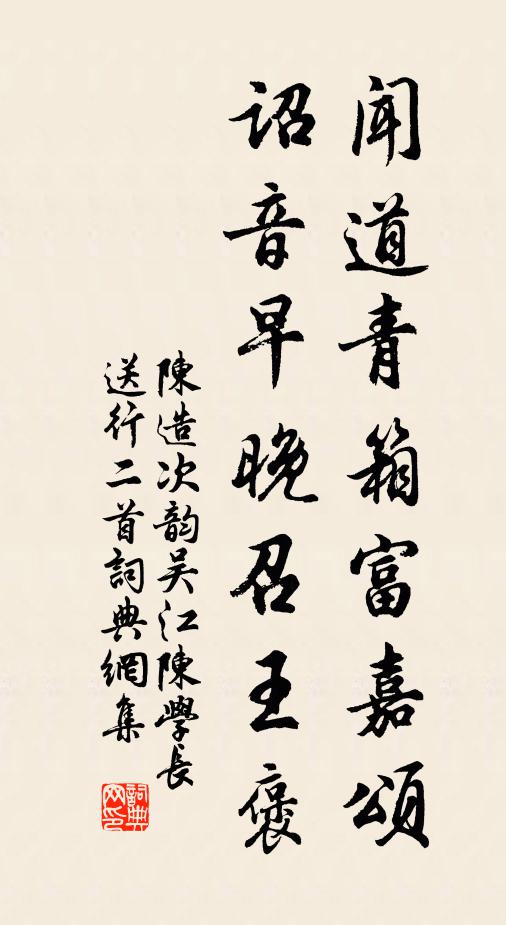 闻道青箱富嘉頌
詔音早晚召王褒
陳造次韵吴江陳學長
送行二首詞典網集
詞典网印